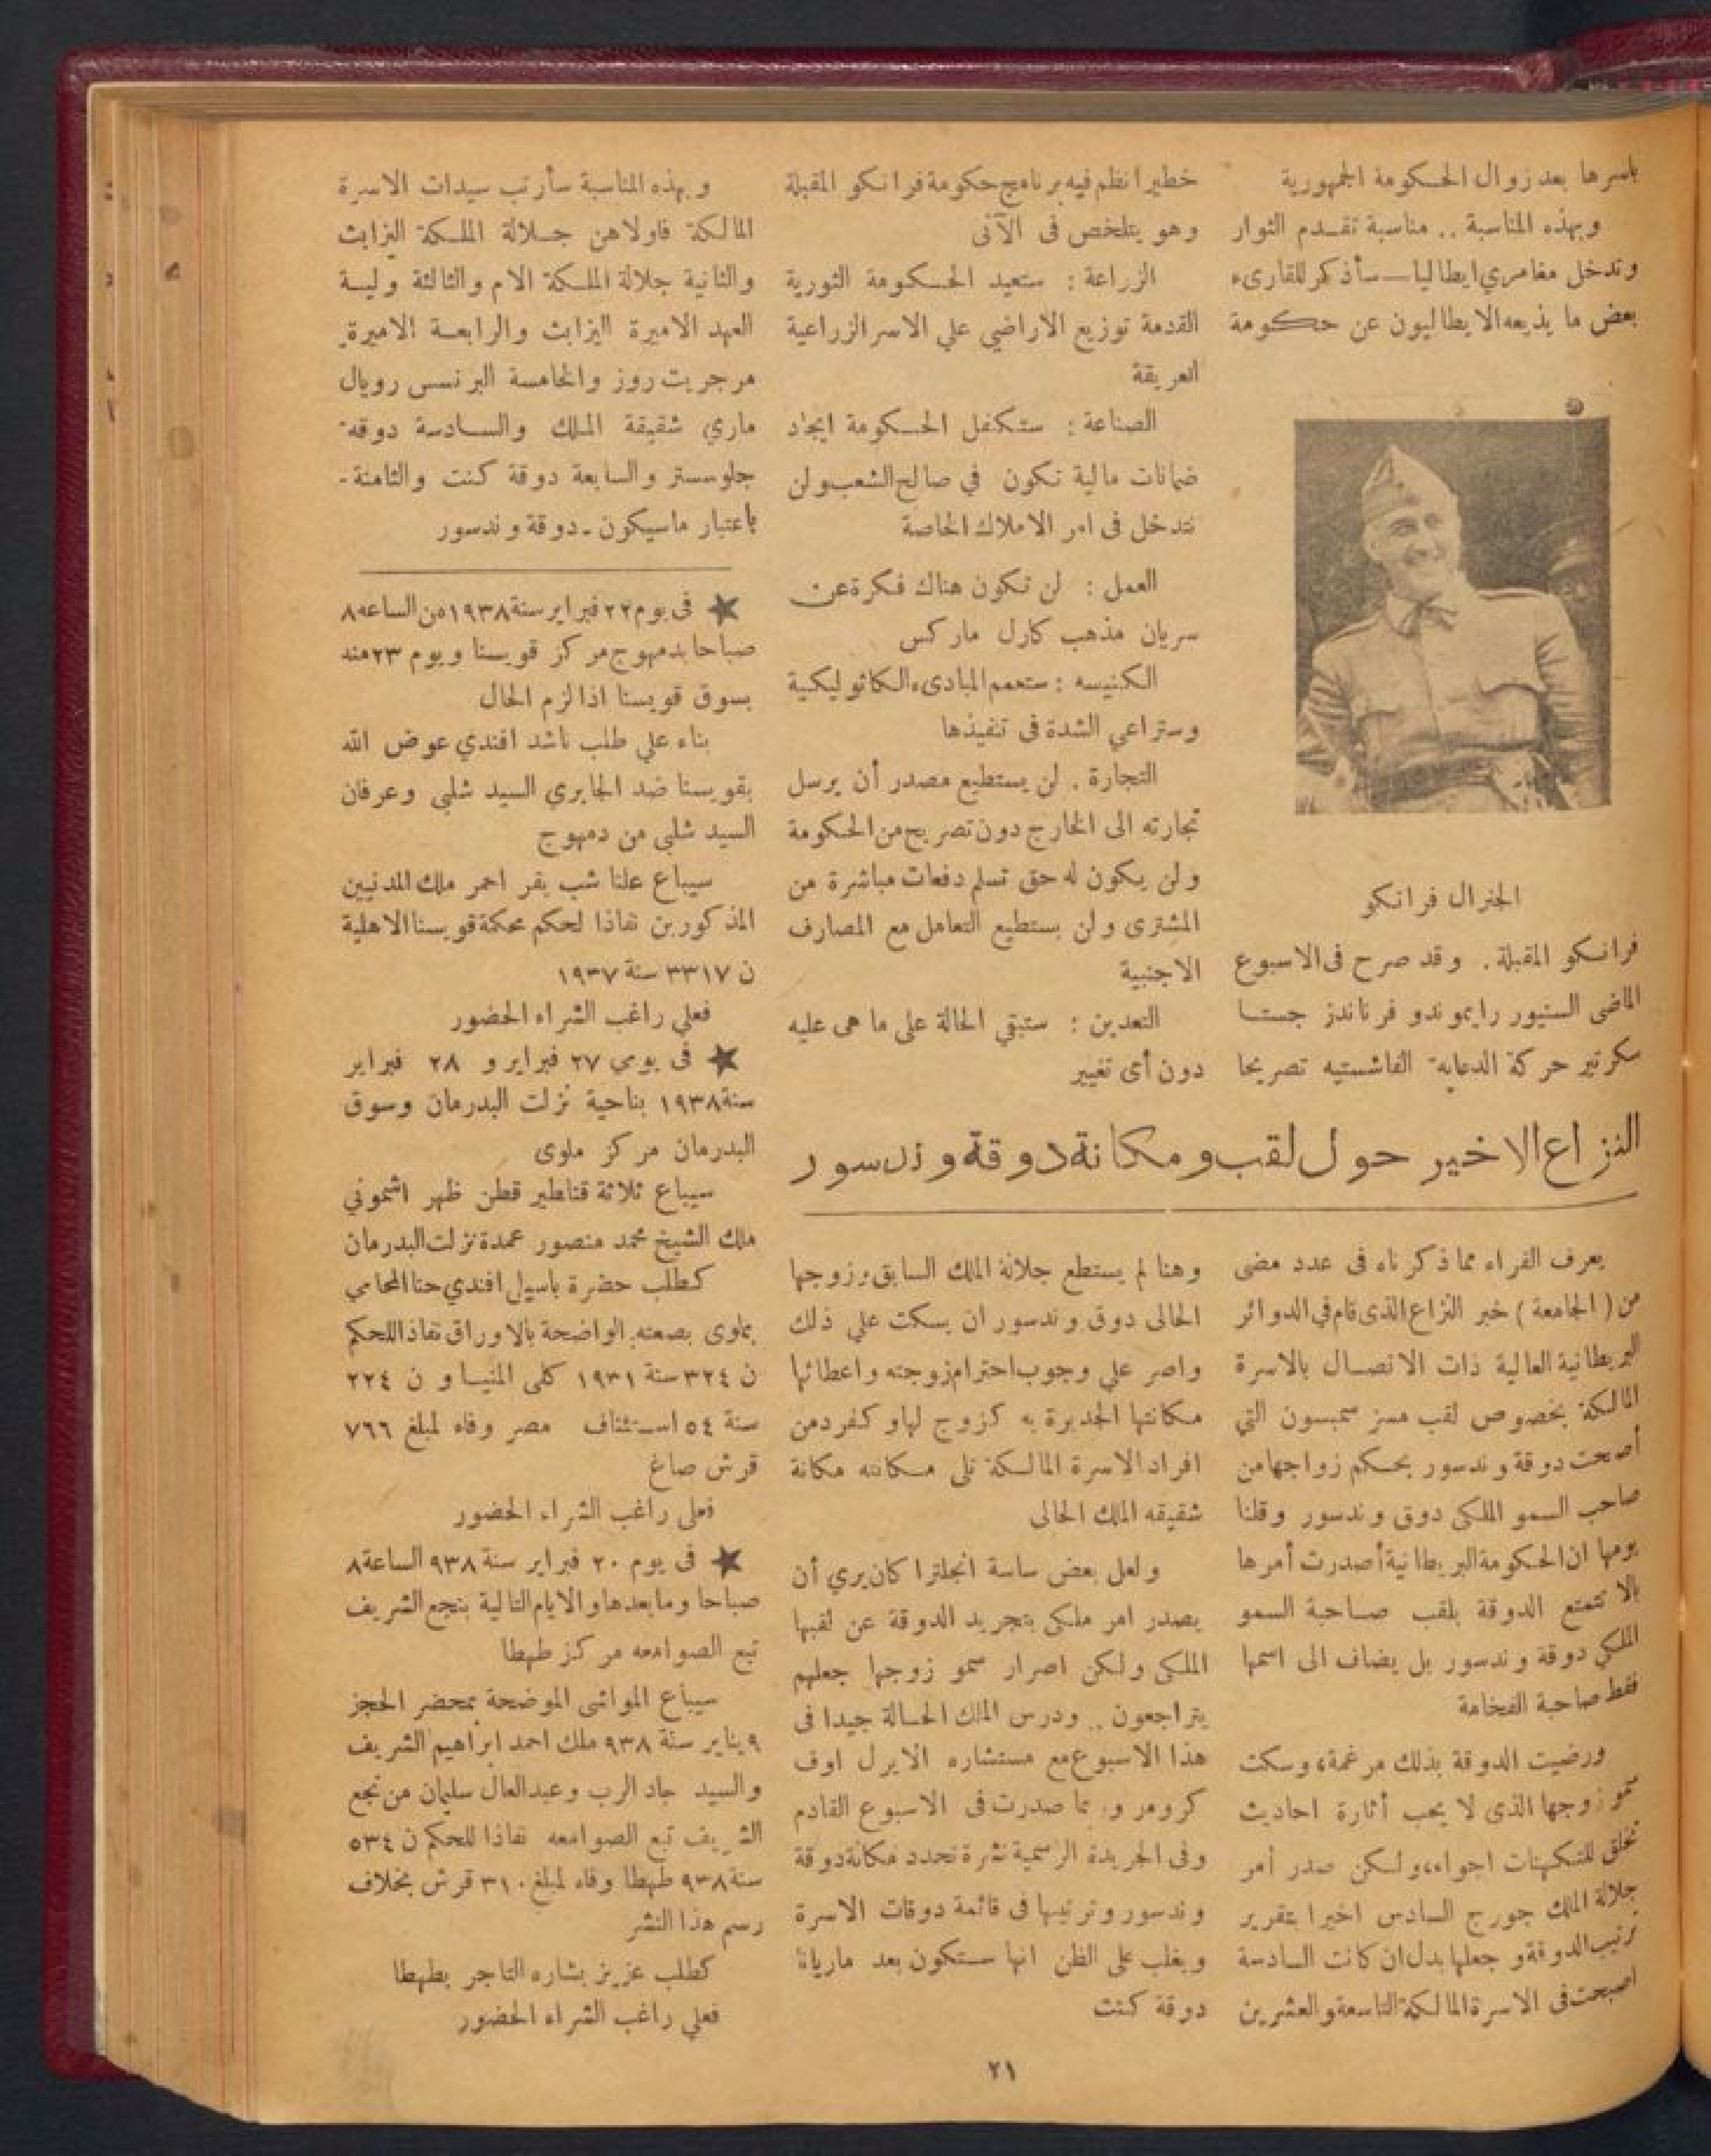 بأسرها بعد زوال الحكومة الجمهورية
وبهذه المناسبة .. مناسبة تقدم الثوار
وتدخل مغامري ايطاليا — سأذكر للقارىء
بعض ما يذيعه الايطاليون عن حكومة
الجنرال فرانكو
فرانكو المقبلة . وقد صرح فى الاسبوع
الماضى السنيور رايموندو فرناندز جستا
سكرتير حركة الدعاية الفاشستيه تصريحا
خطيرا نظم فيه برنامج حكومة فرانكو المقبلة
وهو يتلخص فى الآتى
الزراعة : ستعيد الحكومة الثورية
القدمة توزيع الاراضي علي الاسر الزراعية
العريقة
الصناعة : ستكفل الحكومة ايجاد
ضمانات مالية تكون في صالح الشعب ولن
تتدخل فى امر الاملاك الخاصة
العمل : لن تكون هناك فكرة عن
سريان مذهب كارل ماركس
الكنيسه : ستعمم المبادىء الكاثوليكية
وستراعي الشدة فى تنفيذها
التجارة . لن يستطيع مصدر أن يرسل
تجارته الى الخارج دون تصريح من الحكومة
ولن يكون له حق تسلم دفعات مباشرة من
المشترى ولن يستطيع التعامل مع المصارف
الاجنبية
التعدين : ستبقي الحالة على ما هى عليه
دون أى تغيير
النزاع الاخير حول لقب ومكانة دوقة وندسور
يعرف القراء مما ذكرناه فى عدد مضى
من ( الجامعة ) خبر النزاع الذى قام في الدوائر
البريطانية العالية ذات الاتصال بالاسرة
المالكة بخصوص لقب مسز سمبسون التي
أصبحت دوقة وندسور بحكم زواجها من
صاحب السمو الملكى دوق وندسور وقلنا
يومها ان الحكومة البريطانية أصدرت أمرها
بالا تتمتع الدوقة بلقب صاحبة السمو
الملكي دوقة وندسور بل يضاف الى اسمها
فقط صاحبة الفخامة
ورضيت الدوقة بذلك مرغمة، وسكت
سمو زوجها الذى لا يحب أثارة احاديث
تخلق للتكهنات اجواء، ولكن صدر أمر
جلالة الملك جورج السادس اخيرا بتقرير
ترتيب الدوقة وجعلها بدل ان كانت السادسة
اصبحت فى الاسرة المالكة التاسعة والعشرين
وهنا لم يستطع جلالة الملك السابق وزوجها
الحالى دوق وندسور ان يسكت علي ذلك
واصر علي وجوب احترام زوجته واعطائها
مكانتها الجديرة به كزوج لها وكفرد من
افراد الاسرة المالكة تلى مكانته مكانة
شقيقه الملك الحالى
ولعل بعض ساسة انجلترا كان يري أن
يصدر امر ملكى بتجريد الدوقة عن لقبها
الملكى ولكن اصرار سمو زوجها جعلهم
يتراجعون .. ودرس الملك الحالة جيدا فى
هذا الاسبوع مع مستشاره الايرل اوف
كرومر وربما صدرت فى الاسبوع القادم
وفى الجريدة الرسمية نشرة تحدد مكانة دوقة
وندسور وترتيبها فى قائمة دوقات الاسرة
ويغلب على الظن انها ستكون بعد ماريانا
دوقة كنت
وبهذه المناسبة سأرتب سيدات الاسرة
المالكة فاولاهن جلالة الملكة اليزابث
والثانية جلالة الملكة الام والثالثة ولية
العهد الاميرة اليزابث والرابعة الاميرة
مرجريت روز والخامسة البرنسس رويال
ماري شقيقة الملك والسادسة دوقة
جلوسستر والسابعة دوقة كنت والثامنة -
باعتبار ماسيكون - دوقة وندسور
★ فى يوم ٢٢ فبراير سنة ١٩٣٨ من الساعه ٨
صباحا بدمهوج مركز قويسنا ويوم ٢٣ منه
بسوق قويسنا اذا لزم الحال
بناء علي طلب ناشد افندي عوض الله
بقويسنا ضد الجابري السيد شلبي وعرفان
السيد شلبى من دمهوج
سيباع علنا شب بقر احمر ملك المدنيين
المذكورين نفاذا لحكم محكمة قويسنا الاهلية
ن ٣٣١٧ سنة ١٩٣٧
فعلي راغب الشراء الحضور
★ فى يومى ٢٧ فبراير و ٢٨ فبراير
سنة ١٩٣٨ بناحية نزلت البدرمان وسوق
البدرمان مركز ملوى
سيباع ثلاثة قناطير قطن ظهر اشموني
ملك الشيخ محمد منصور عمدة نزلت البدرمان
كطلب حضرة باسيل افندي حنا المحامي
بملوى بصفته الواضحة بالاوراق نفاذا للحكم
ن ٣٢٤ سنة ١٩٣١ كلى المنيا و ن ٢٢٤
سنة ٥٤ استئناف مصر وفاء لمبلغ ٧٦٦
قرش صاغ
فعلى راغب الشراء الحضور
★ فى يوم ٢٠ فبراير سنة ٩٣٨ الساعة ٨
صباحا ومابعدها والايام التالية بنجع الشريف
تبع الصوامعه مركز طهطا
سيباع المواشى الموضحة بمحضر الحجز
٩ يناير سنة ٩٣٨ ملك احمد ابراهيم الشريف
والسيد جاد الرب وعبدالعال سليمان من نجع
الشريف تبع الصوامعه نفاذا للحكم ن ٥٣٤
سنة ٩٣٨ طهطا وفاء لمبلغ ٣١٠ قرش بخلاف
رسم هذا النشر
كطلب عزيز بشاره التاجر بطهطا
فعلي راغب الشراء الحضور
٢١